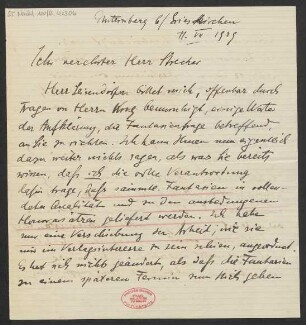 6/ Grieskirchen
11. VI 1929
Sehr verehrter Herr Brecher
Herr bittet mich, offenbar durch
Fragen von Herrn beunruhigt, einige Worte
der Aufklärung, die Fantasienfrage betreffend,
an Sie zu richten. Ich kann Ihnen nun eigentlich
dazu weiter nichts sagen, als was Sie bereits
wissen, daß ich die volle Verantwortung
dafür trage, daß sämmtl. Fantasien in
Qualität und zu den ausbedungenen
geliefert werden. Ich habe
nur eine Verschiebung der Arbeit, wie sie
mir im Verlagsinteresse zu sein schien, angeordnet.
Es hat sich nichts geändert, als daß die Fantasien
zu einem späteren Termin